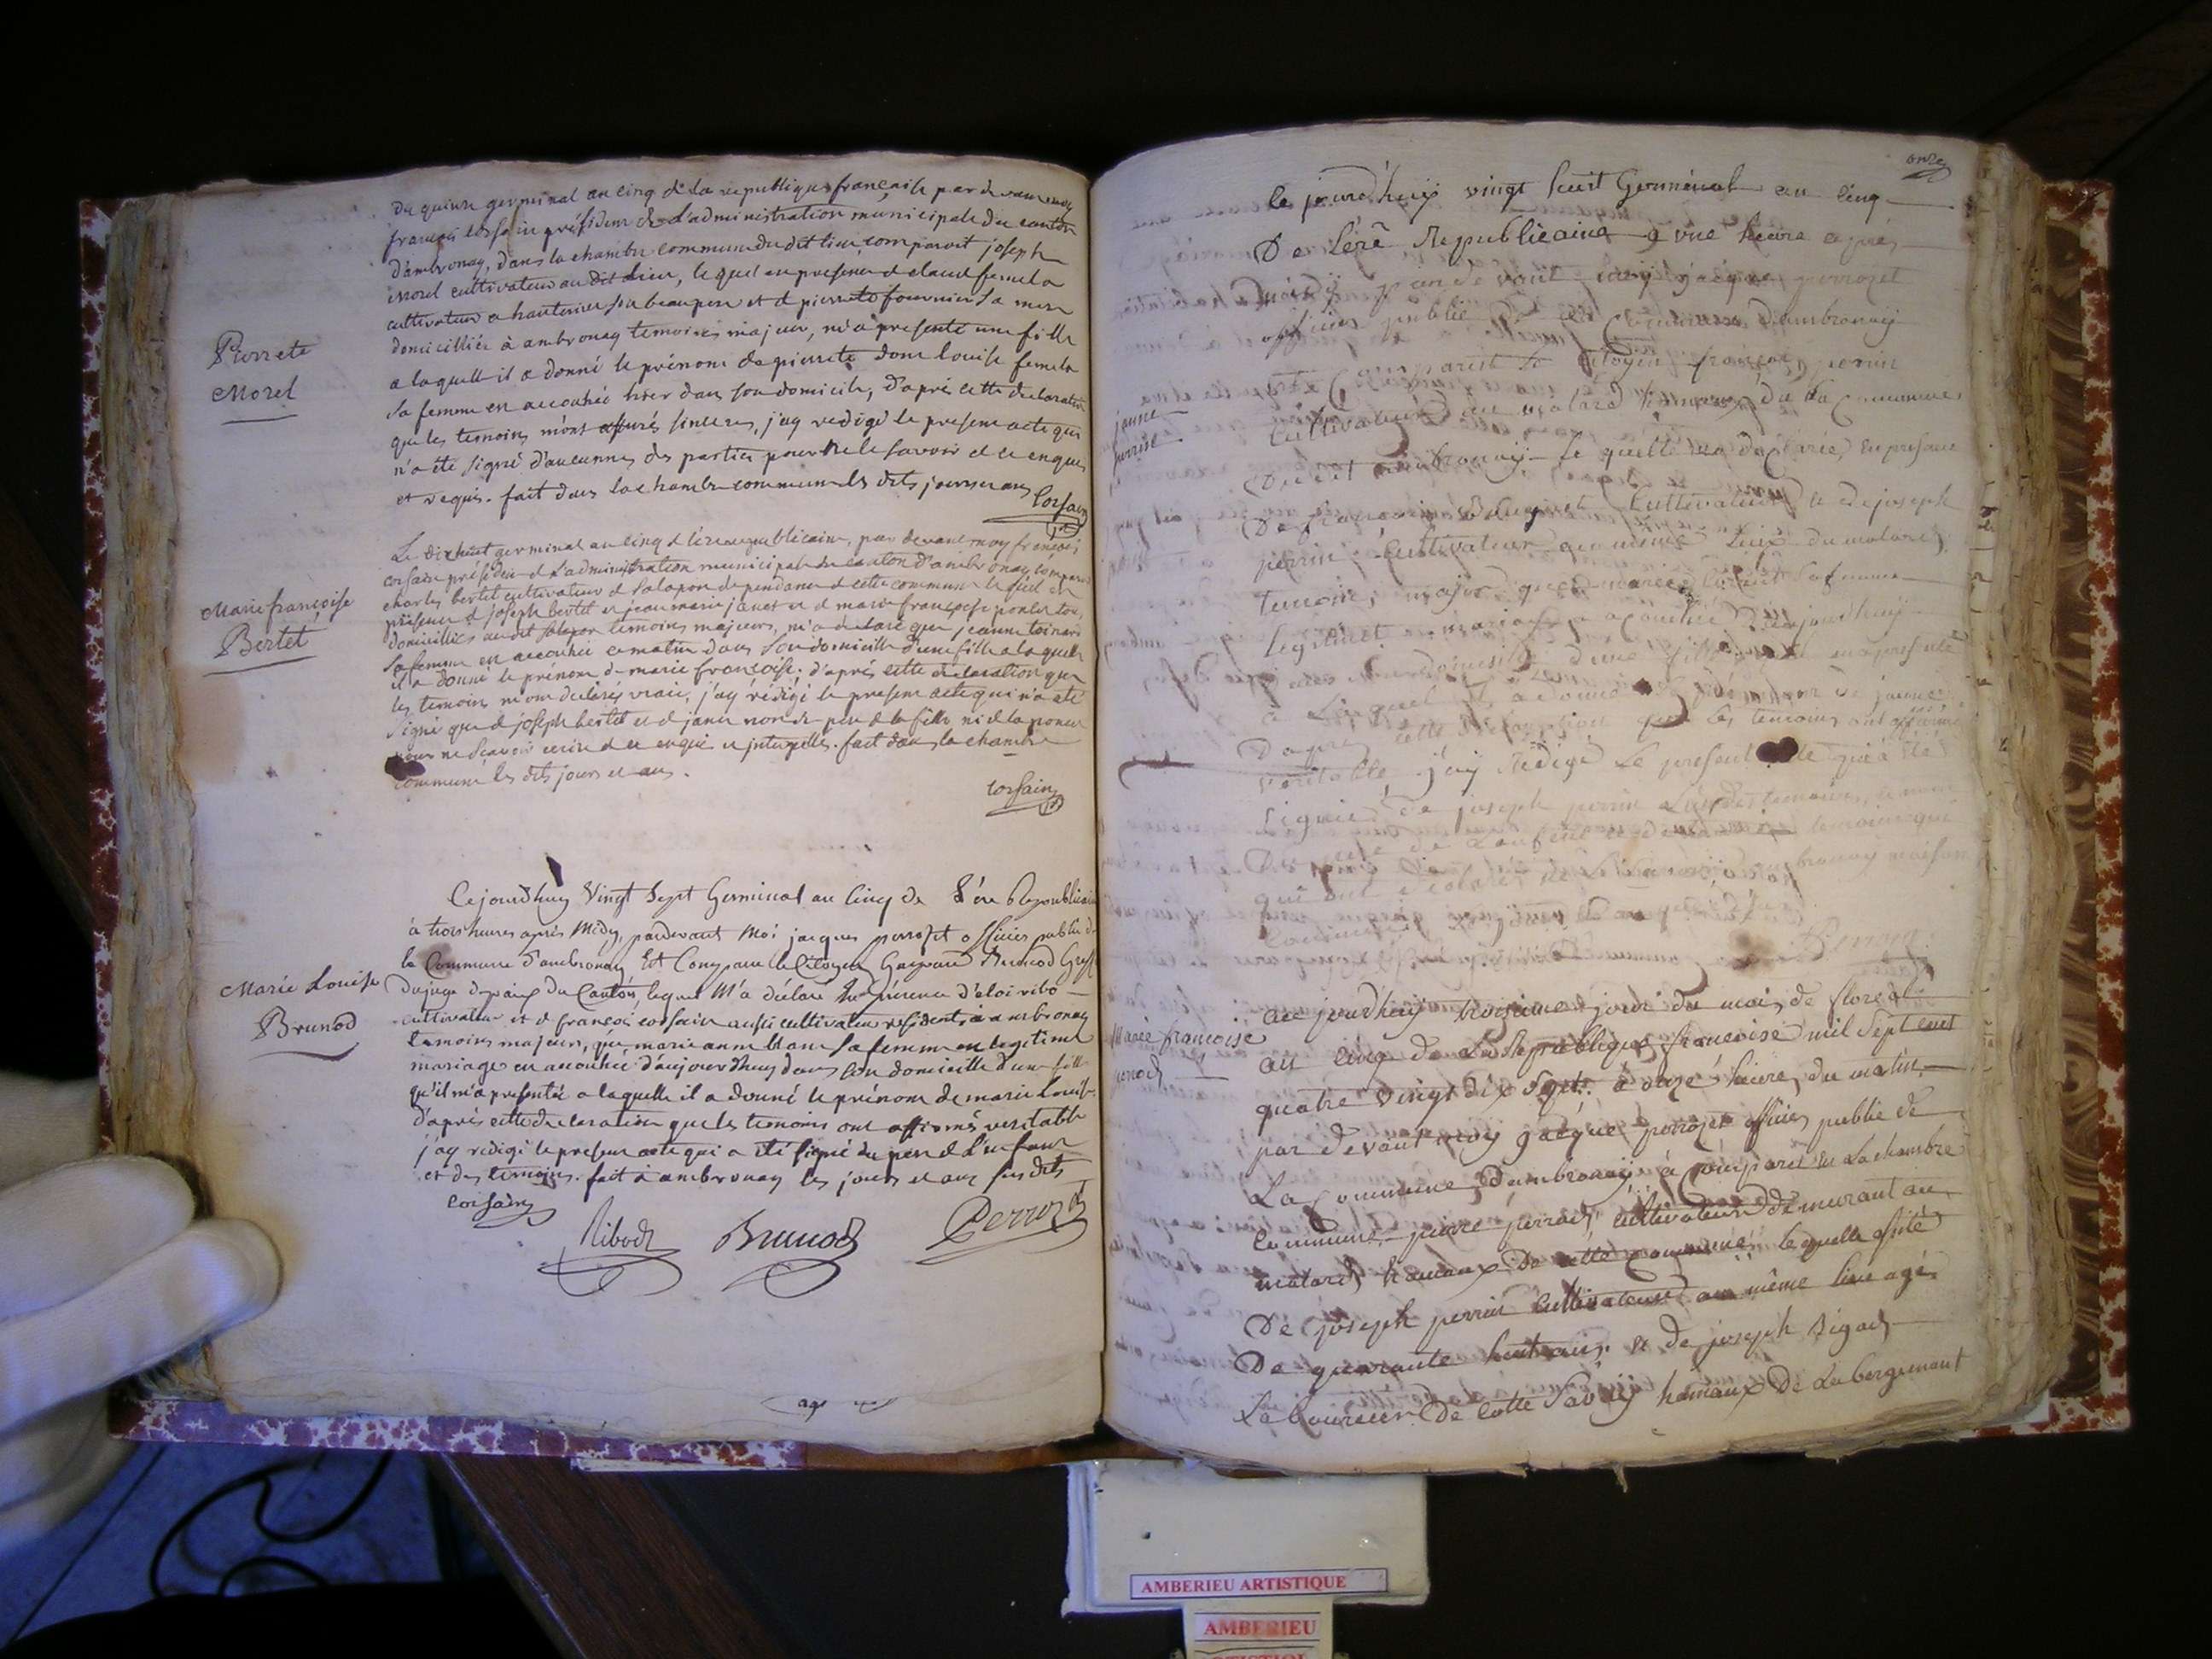 du quinze germinal an cinq de la republique française par devant moy
françois corsain président de l'administration municipale du canton
d'ambronay, dans la chambre commune du dit lieu comparoit joseph
morel cultivateur au dit lieu, lequel en presence de claude femela
cultivateur a hauterive son beau pere et de pierrete fournier sa mere
domicilliés à ambronay temoins majeur, m'a presenté une fille
a laquelle il a donné le prénom de pierrete dont louise femela
sa femme en accouhée hier dans son domicile, d'aprés cette declaration
que les temoins m'ont assurés sinceres, j'ay redigé le present acte qui
n'a été signé d'aucunnes des parties pour ne le savoir de ce enquis
et requis. fait dans la chambre commune les dits jours et ans
Corsain
Pierrete
Morel
Le dix huit germinal an cinq de l'ère republicaine, par devant moy françois
corsain président de l'administration municipale du canton d'ambronay comparoit
charles bertet cultivateur de salapor dependance de cette commune le quel en
présence de joseph bertet et jean marie janet et de marie françoise poncet tous
domicilliés au dit salapor temoins majeurs, m'a declaré que jeanne
sa femme en accouhée ce matin dans son domicille d'une fille a laquelle
il a donné le prénom de marie françoise; d'aprés cette declaration que
les temoins m'ont declarés vraie, j'ay rédigé le present acte qui n'a été
signé que de joseph bertet et de janet non de pere de la fille ni de la poncet
pour ne sçavoir ecrire de ce enquis et interpellés. fait dans la chambre
commune les dits jours et ans.
corsain
Marie françoise
Bertet
Cejourdhuy Vingt Sept Germinal an Cinq de L'ére Republicaine
à trois heures aprés Midy, pardevant Moi jacques perrozet officier public de
la Commune d'ambronay Est Comparu le Citoyen Gaspard Brunod Greff
du juge de paix du Canton, lequel M'a déclaré En présence d'eloi ribo
cultivateur et de françois corsain aussi cultivateur residents a ambronay
temoins majeurs, que marie anne blanc sa femme en legitime
mariage en accouhée d'aujourdhuy dans son domicille d'une fille
qu'il m'a presentée a laquelle il a donné le prénom de marie Louise
d'aprés cette declaration que les temoins ont affirmés veritable
j'ay redigé le present acte qui a été signé du pere de L'enfant
et des temoins. fait à ambronay les jours et ans susdits
Corsain
Ribod Brunod Perrozet
Marie Louise
Brunod
onze
Ce jourd'huy vingt huit Germinal an cinq
De Lérê Republicaine a une heure aprés
par devant moy jacque perrozet
officier publie de la Commune d'ambronay
Comparest le Citoyen françois perrin
Cultivateur au molard hamaux de la Commune
jeanne
perrine
Dudit ambronay le quelle ma déclarée, en presance
De françois Cultivateur et de joseph
perrin Cultivateur au même lieux du molard
temoins, major que marie sa femme
Legitime mariage acouchée aujourdhuy
domicille d'une fille quil ma presenté
à Laquel il a donné le prénom de jeanne
Daprés cette déclaration que les temoins ont affirmé
véritable, j'ay Redigé Le present acte qui a été
signée de joseph perrin L'un des temoins, et non
De pere de Lenfant temoins que
qui ont declaré ne Le Savoir ambronay maison
Commune
Perrin
Marie francoise
perrod
au jourd'huy troisieme jour du mois de floreal
an cinq de La Republique francoise mil Sept cent
quatre vingt dix Sept. à onze heure, du matin
par devant moy jacque perrozet officier publie de
La Commune Dambronay à Comparest en La chambre
Commune pierre perrod cultivateur demeurant au
molard, hamaux De cette commune, le quelle assité
De joseph perrin Cultivateur au même lieu agé
De quarante huit ans. et de joseph Rigod
Laboureur De Cotte Savoy hamaux De La bergement
AMBERIEU ARTISTIQUE
AMBERIEU